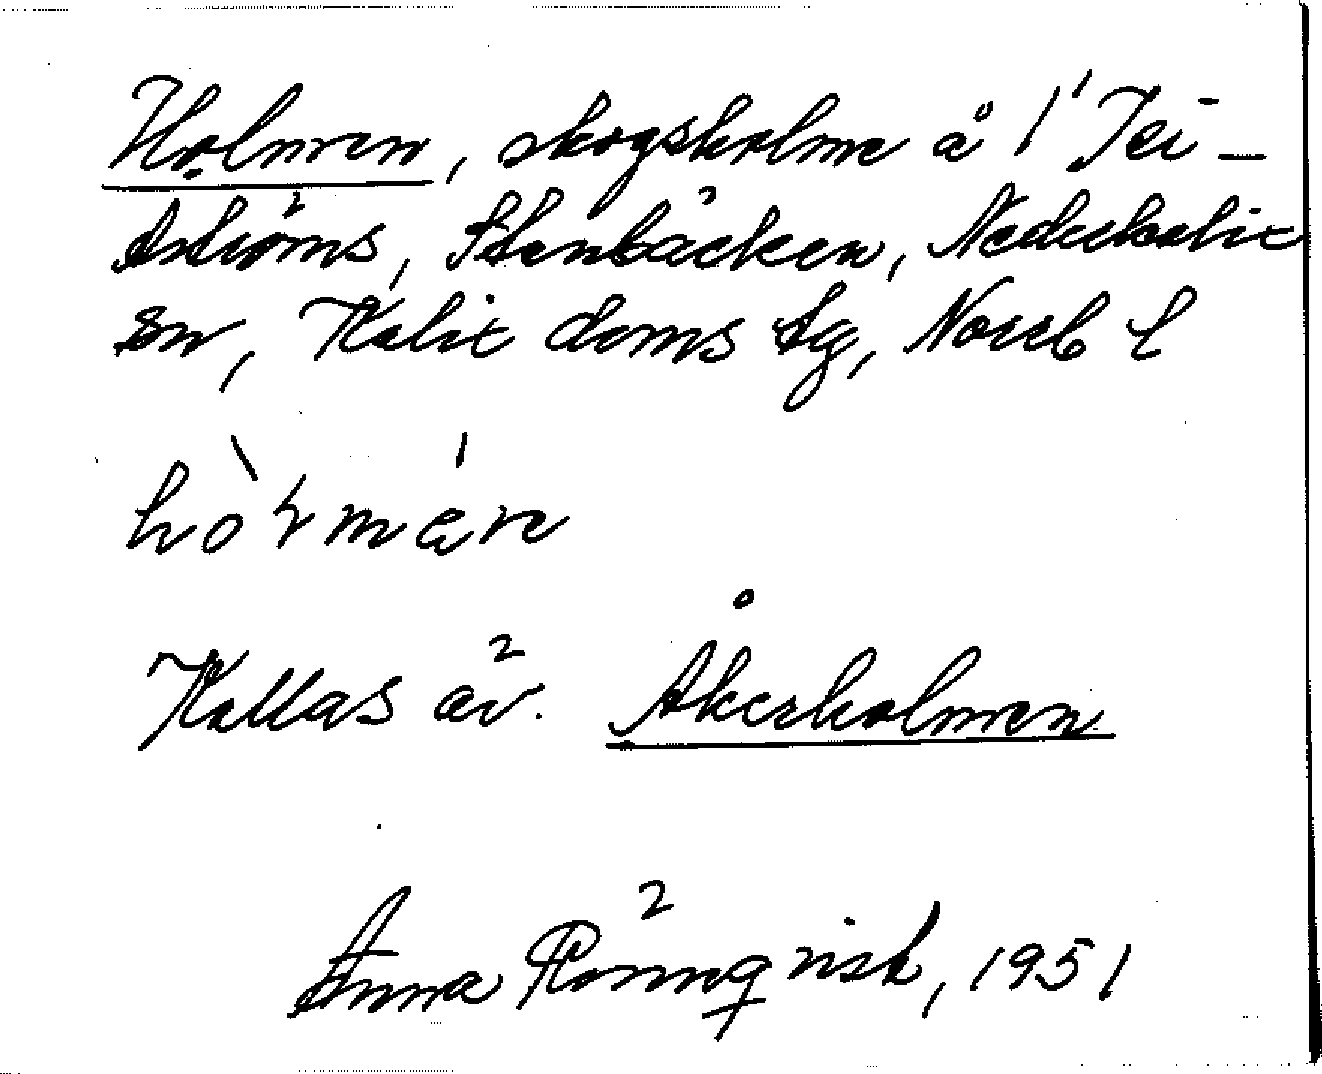 Holmen, skogsholme å 1' Tei-
ströms, Stenbäcken, Nederkalix
sn, Kalix doms tg, Norrb l
hòlmán
Kallas äv. Åkerholmen
Anna Rönnqvist, 1951